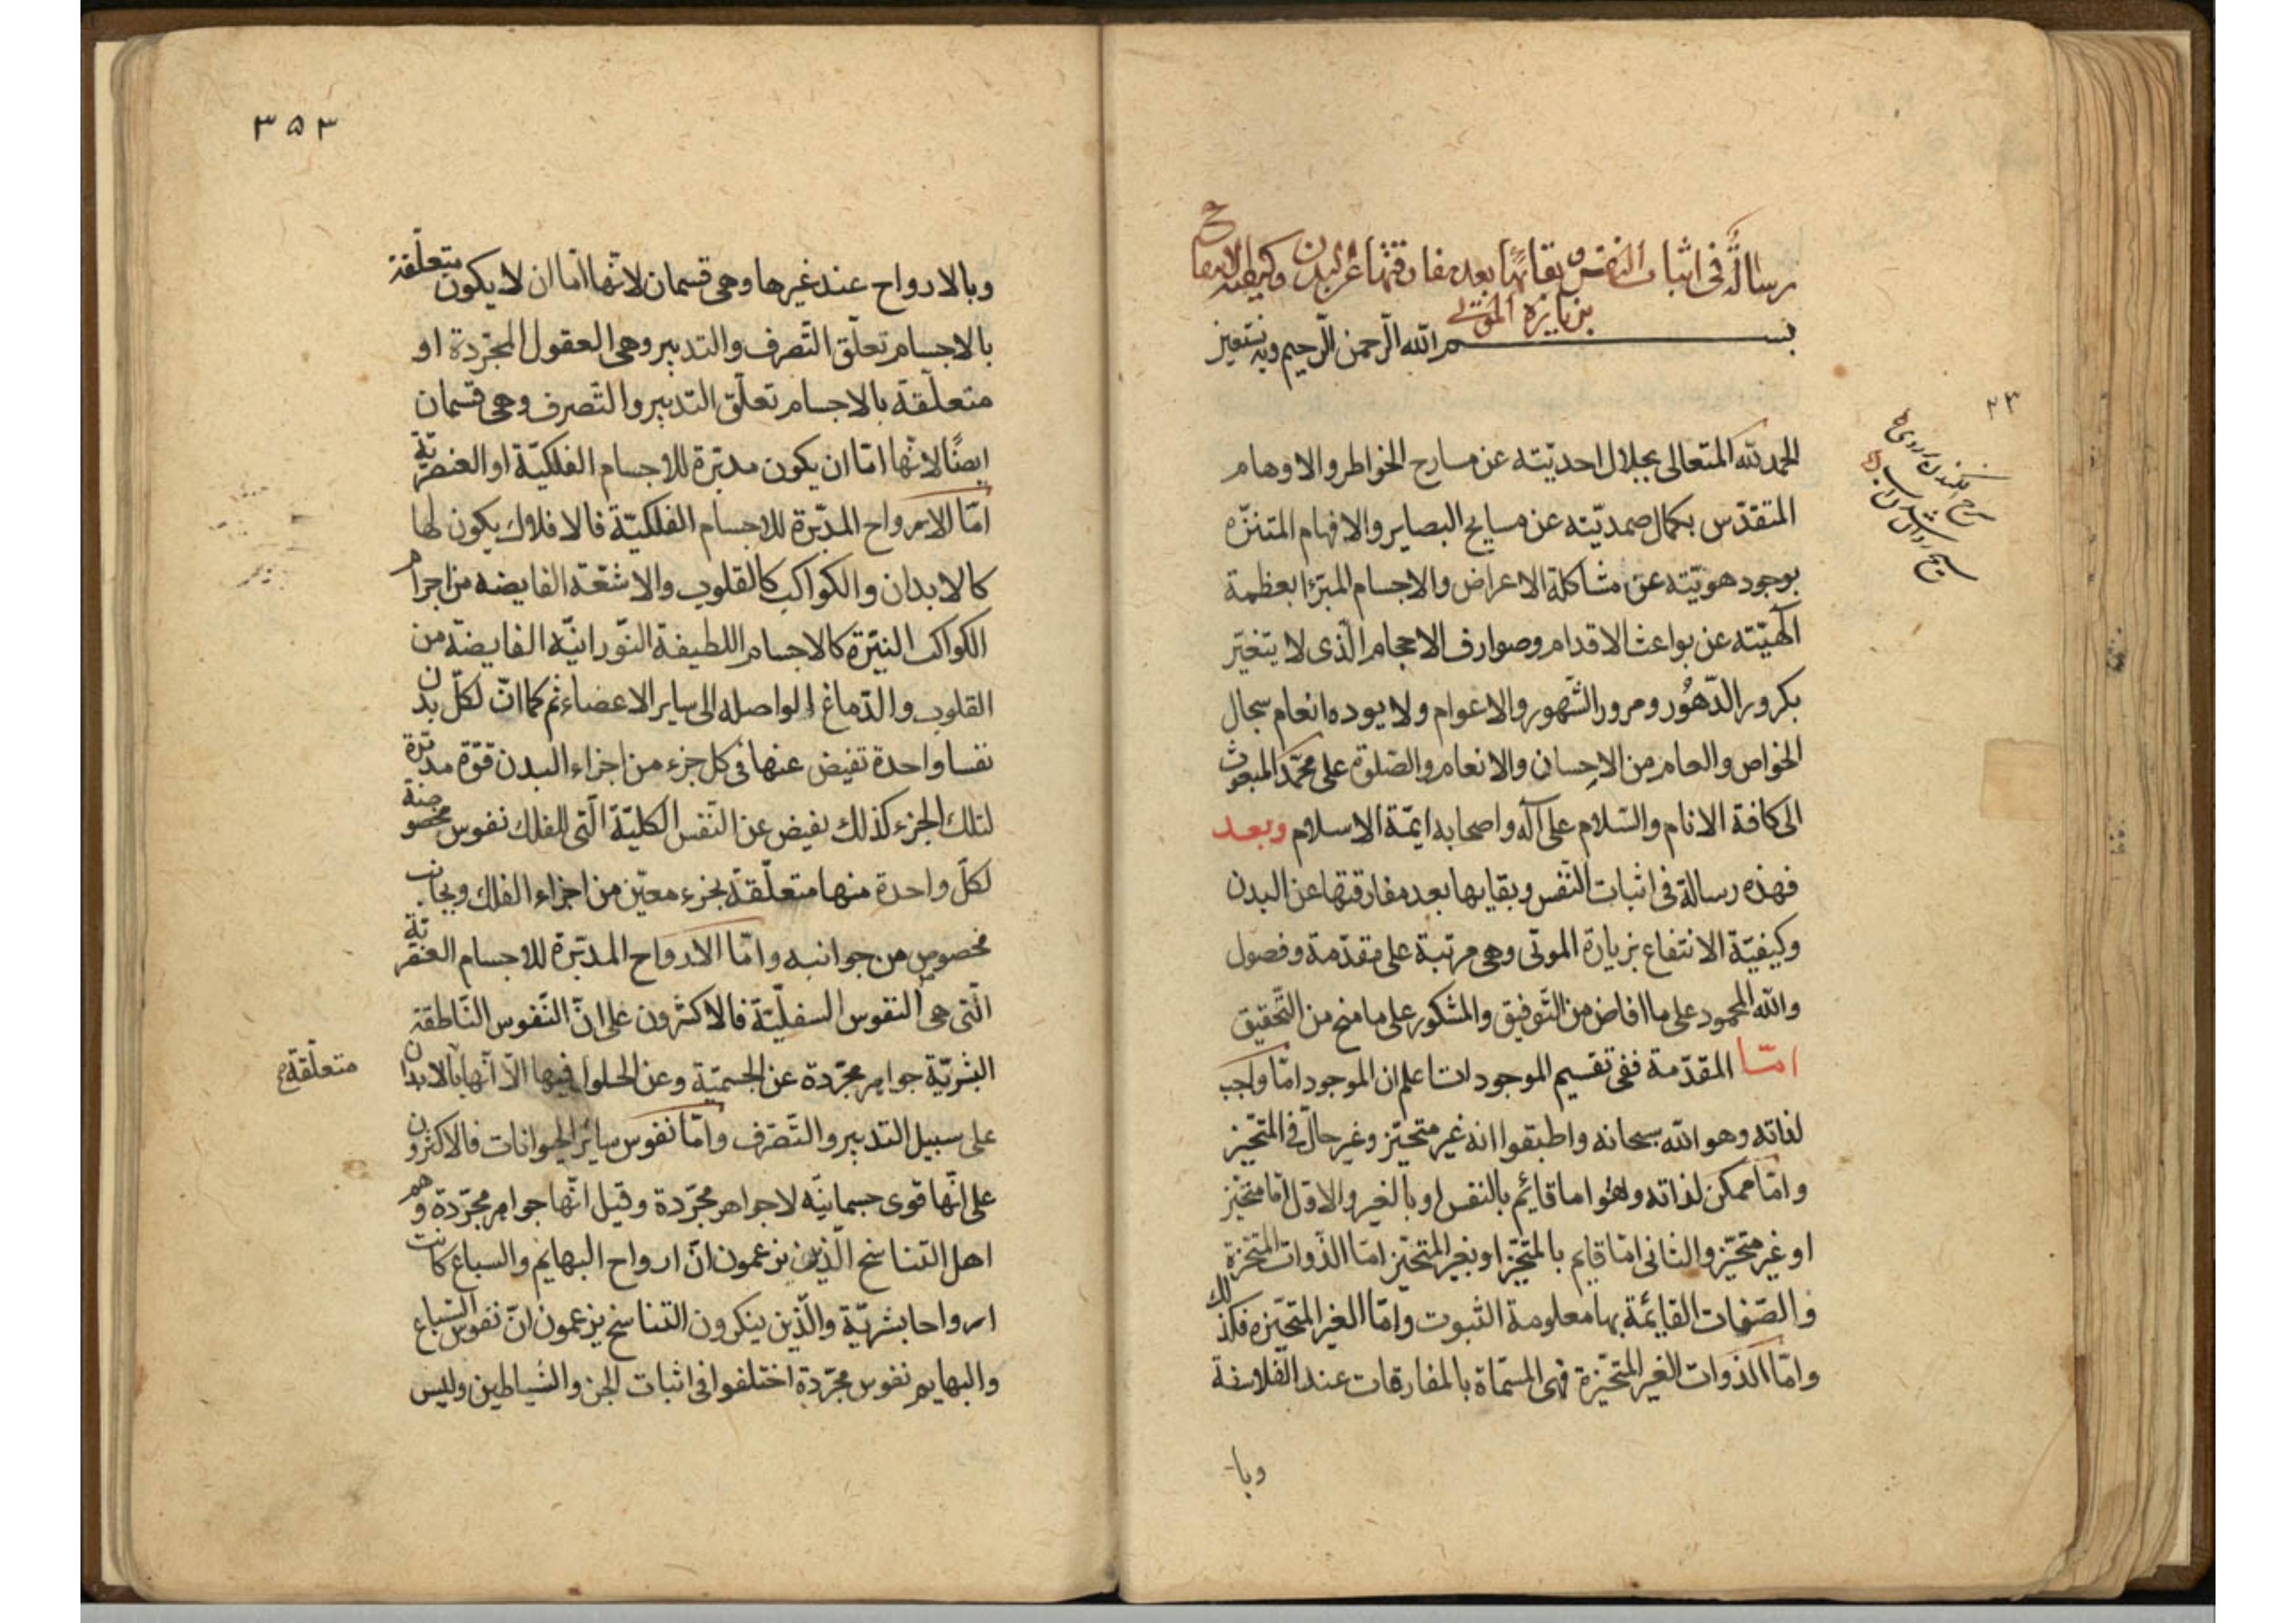 رسالة فى اثبات النفس و بقائها بعد مفارقتها عن البدن وكيفية الانتفاع
بزيارة الموتى
بسم الله الرحمن الرحيم وبه نستعين
٢٣
الحمد لله المتعالى بجلال احديّته عن مسارح الخواطر والاوهام
المتقدّس بكمال صمديّته عن مسايح البصاير والافهام المتنزّه
بوجود هويّته عن مشاكلة الاعراض والاجسام المبرّا بعظمة
آلهيّته عن بواعث الاقدام وصوارف الاحجام الّذى لا يتغيّر
بكرور الدّهُور ومرور الشّهور والاعوام ولا يوده انعام سجال
الخواص والعام من الاِحسان والانعام والصّلوة على محمّد المبعوث
الى كافة الانام والسّلام على آله واصحابه ايمّة الاسلام وبعد
فهذه رسالة فى اثبات النّفس وبقايها بعد مفارقتها عن البدن
وكيفيّة الانتفاع بزيارة الموتى وهى مرتبة على مقدّمة وفصول
والله المحمود على ما افاض من التّوفيق والمشكور على ما منح من التّحقيق
امّا المقدّمة ففى تقسيم الموجودات اعلم ان الموجود امّا واجب
لذاته وهو الله سبحانه واطبقوا انه غير متحيّز وغير حالّ فى المتحيّز
وامّا ممكن لذاته وهُو اما قائم بالنفس او بالغير والاوّل امّا متحيّز
او غير متحيّز والثانى امّا قايم بالمتحيّز او بغير المتحيّز امّا الذّوات المتحيّزة
والصّفات القائمة بها معلومة الثبوت وامّا الغير المتحيّزه فكذلك
وامّا الذوات الغير المتحيّزة فهى المسمّاة بالمفارقات عند الفلاسفة
وبا
٣٥٣
وبالارواح عند غيرها وهى قسمان لانّها امّا ان لا يكون متعلّقة
بالاجسام تعلّق التّصرف والتدبير وهى العقول المجرّدة او
متعلّقة بالاجسام تعلّق التدبير والتّصرف وهى قسمان
ايضًا لانّها امّا ان يكون مدبّرة للاجسام الفلكيّة او العنصريّة
امّا الارواح المدبّرة للاجسام الفلكيّة فالافلاك يكون لها
كالابدان والكواكب كالقلوب والاشعّة الفايضه من اجرام
الكواكب النيّرة كالاجسام اللطيفة النّورانيّه الفايضة من
القلوب والدّماغ الواصله الى ساير الاعضاء ثم كما انّ لكلّ بدن
نفسا واحدة تفيض عنها فى كل جزء من اجزاء البدن قوّة مدبّرة
لتلك الجزء كذلك يفيض عن النّفس الكليّة الّتى للفلك نفوس مخصوصة
لكلّ واحدة منها متعلّقة بجزء معيّن من اجزاء الفلك وبجانب
مخصوص من جوانبه وامّا الارواح المدبّرة للاجسام العنصريّة
الّتى هى النفوس السفليّة فالاكثرون على انّ النّفوس النّاطقة
البشريّة جواهر مجرّدة عن الجسميّة وعن الحلول فيها الّا انّها بالابدان
متعلّقة
على سبيل التدبير والتّصرّف وامّا نفوس ساير الحيوانات فالاكثرون
على انّها قوى جسمانيّه لا جواهر مجرّدة وقيل انّها جواهر مجرّدة وهم
اهل التناسخ الّذين يزعمون انّ ارواح البهايم والسباع كانت
ارواحا بشريّة والّذين ينكرون التناسخ يزعمون انّ نفوس السّباع
والبهايم نفوس مجرّدة اختلفوا فى اثبات الجن والشياطين وليس